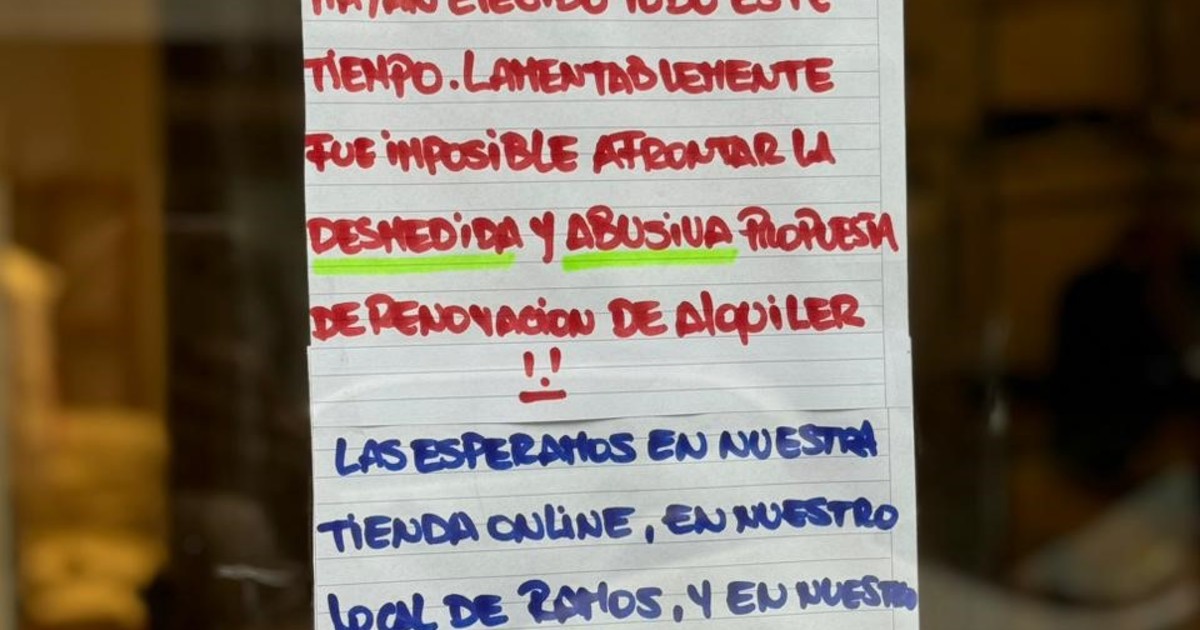 HAYAN ELEGIDO TODO ESTE
TIEMPO. LAMENTABLEMENTE
FUE IMPOSIBLE AFRONTAR LA
DESMEDIDA Y ABUSIVA PROPUESTA
DE RENOVACION DE AlquiLER
!.!
LAS ESPERAMOS EN NUESTRA
TIENDA ONLINE, EN NUESTRO
LOCAL DE RAMOS, Y EN NUESTRO